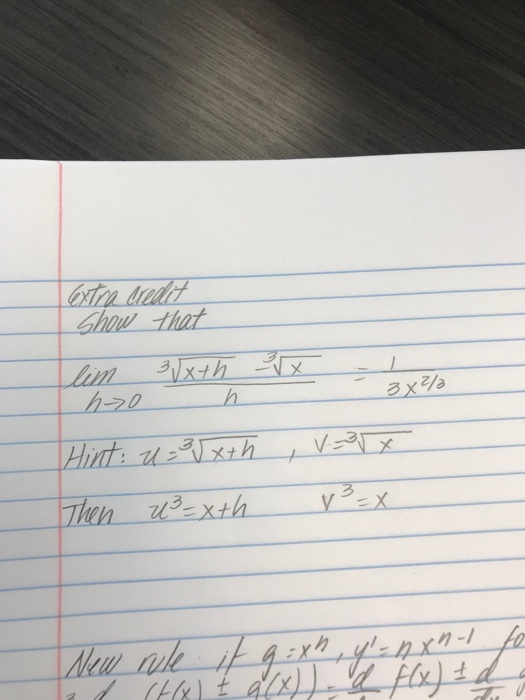 Extra credit
Show that
lim h→0 (∛(x+h) - ∛x)/h = 1/(3x^(2/3))
Hint: u = ∛(x+h) , v = ∛x
Then u³ = x+h v³ = x
New rule if g = xⁿ, y' = n xⁿ⁻¹ fo
(f(x) ± g(x)) = d f(x) ± d